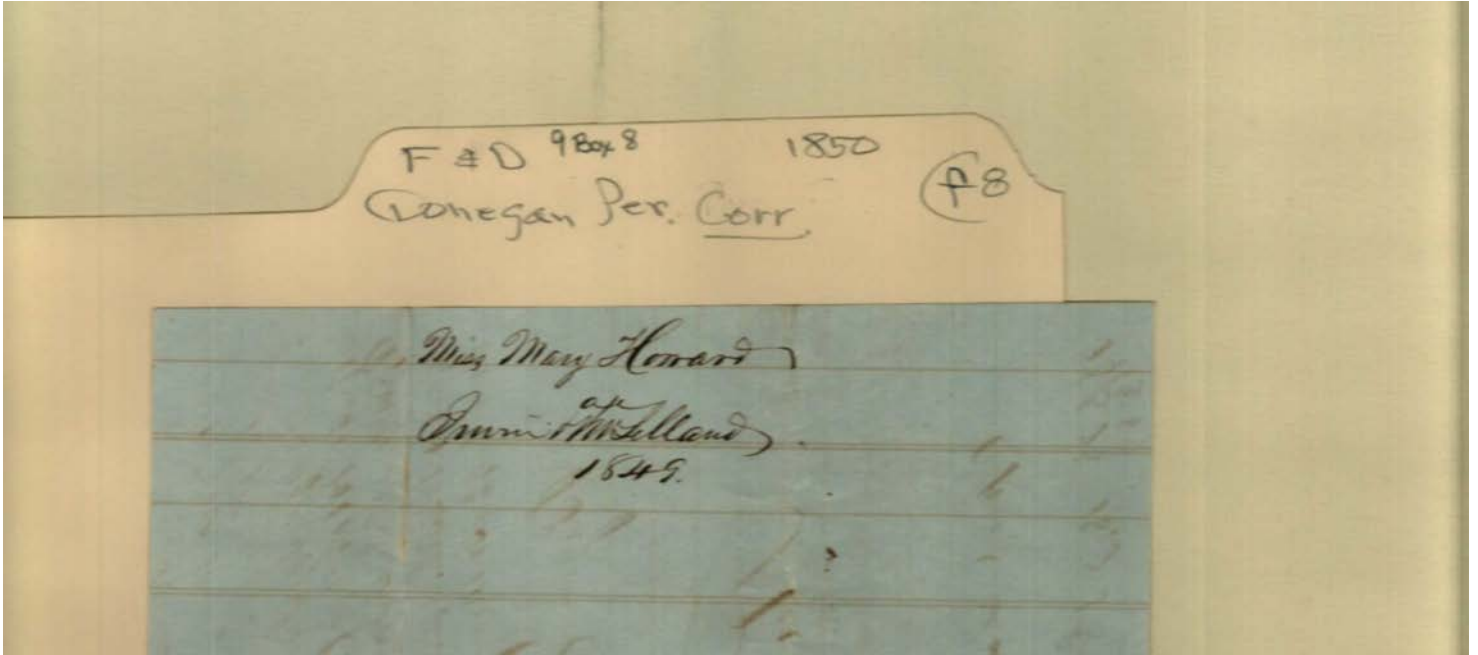 F & D 9 Box 8 1850
Donegan Per. Corr. f8
Miss Mary Howard
Irwin & McLelland
1849.